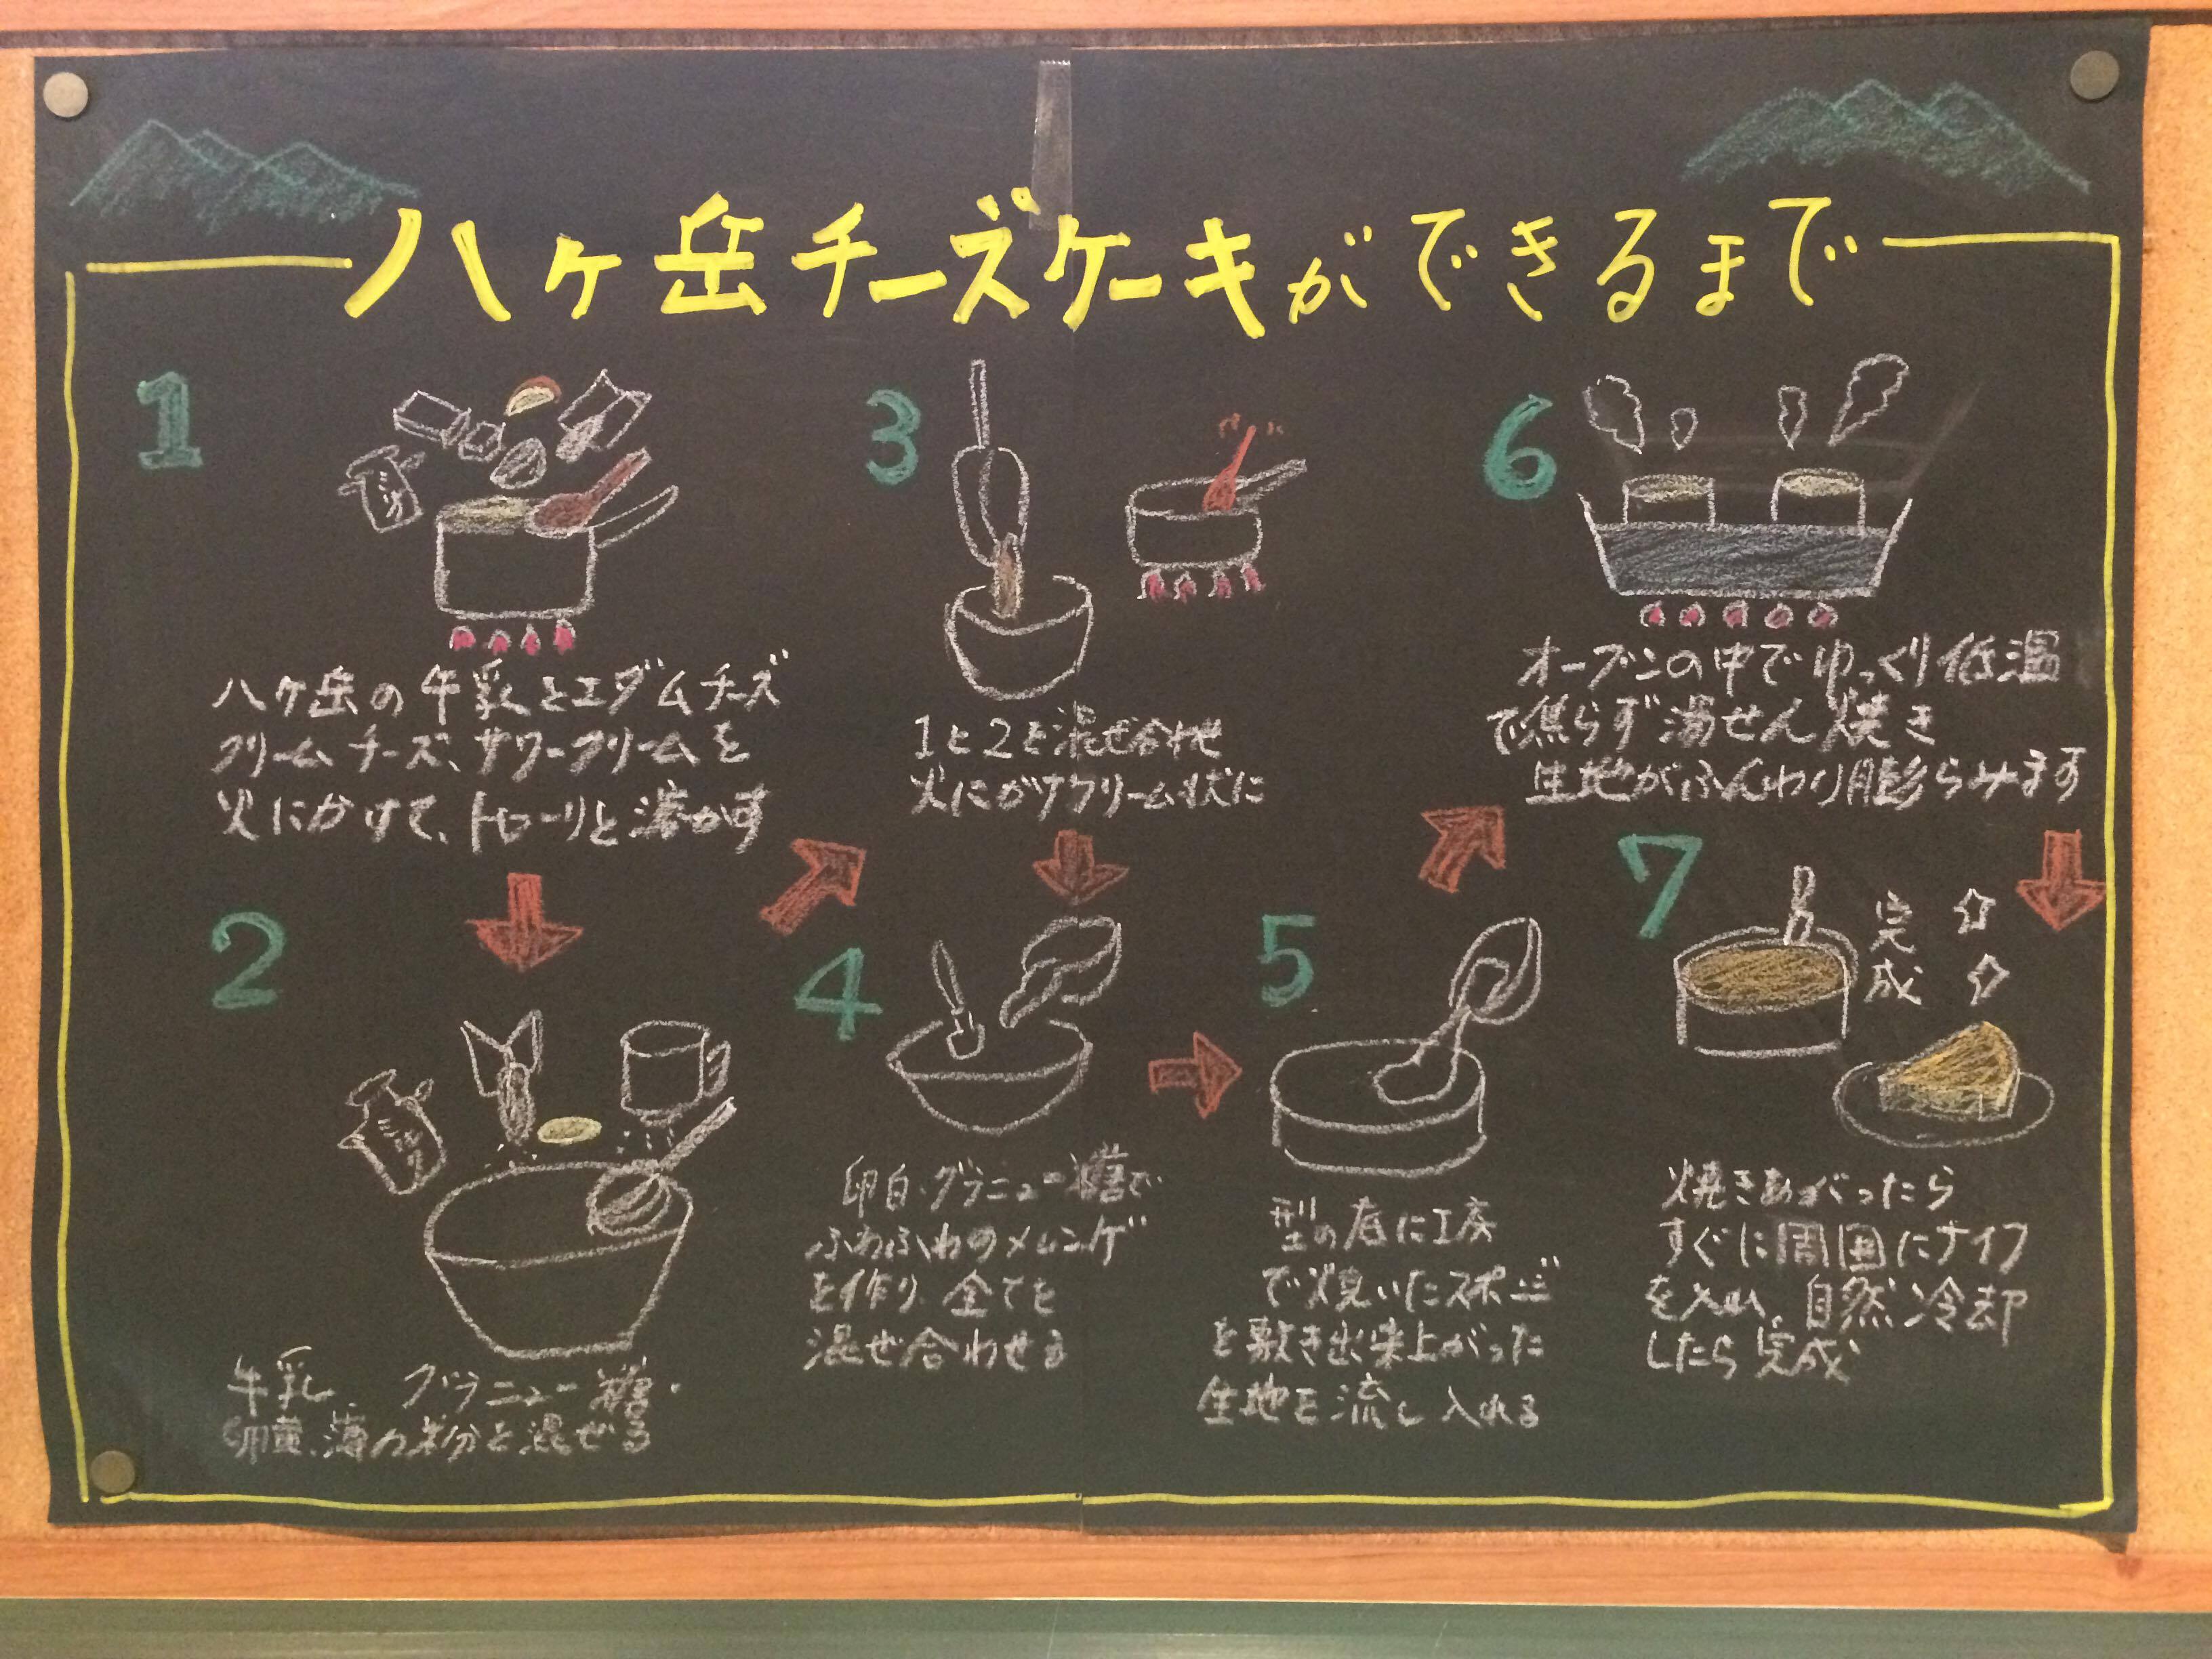 八ヶ岳チーズケーキができるまで
1
八ヶ岳の牛乳とエダムチーズ
クリームチーズ、サワークリームを
火にかけて、トローリと溶かす
2
ミルク
牛乳、グラニュー糖・
卵黄、薄力粉を混ぜる
3
1と2を混ぜ合わせ
火にかけクリーム状に
4
卵白・グラニュー糖で
ふわふわのメレンゲ
を作り、全てを
混ぜ合わせる
5
型の底に工房
で焼いたスポンジ
を敷き出来上がった
生地を流し入れる
6
オーブンの中でゆっくり低温
で焦らず湯せん焼き
生地がふんわり膨らみます
7
完成
焼きあがったら
すぐに周囲にナイフ
を入れ、自然冷却
したら完成